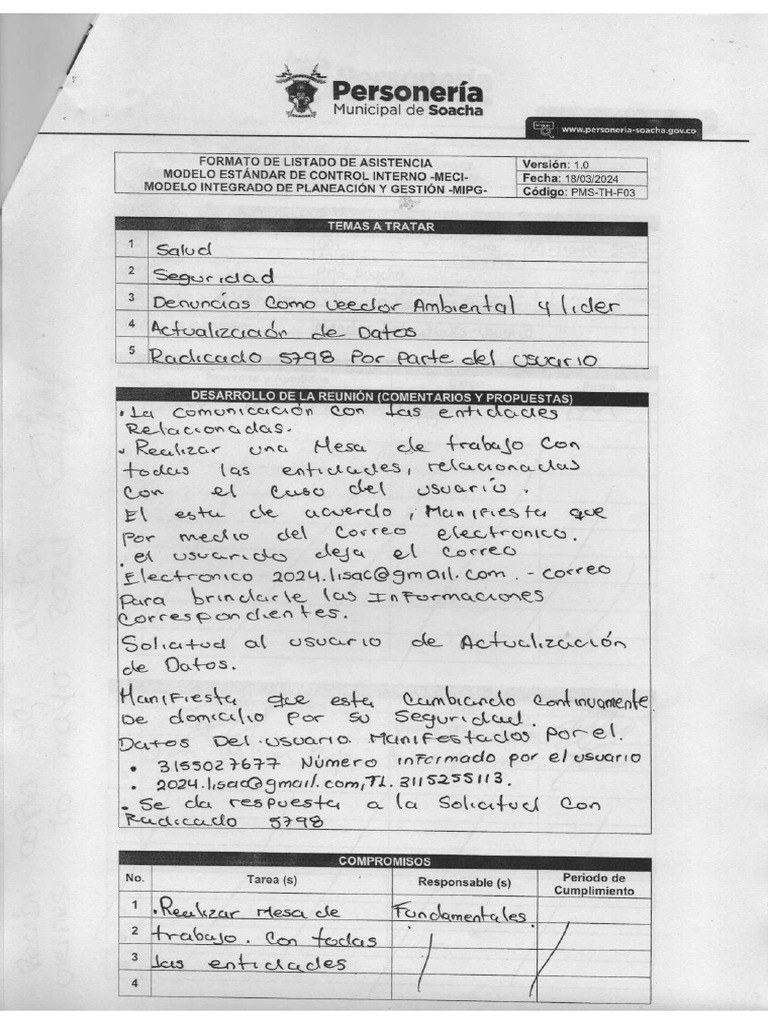 Personería
Municipal de Soacha
www.personeria-soacha.gov.co
FORMATO DE LISTADO DE ASISTENCIA
MODELO ESTÁNDAR DE CONTROL INTERNO -MECI-
MODELO INTEGRADO DE PLANEACIÓN Y GESTIÓN -MIPG-
Versión: 1.0
Fecha: 18/03/2024
Código: PMS-TH-F03
TEMAS A TRATAR
1 Salud
2 Seguridad
3 Denuncias Como veedor Ambiental y lider
4 Actualización de Datos
5 Radicado 5798 Por parte del usuario
DESARROLLO DE LA REUNIÓN (COMENTARIOS Y PROPUESTAS)
• La comunicación con las entidades
Relacionadas.
• Realizar una Mesa de trabajo Con
todas las entidades, relacionadas
Con el Caso del usuario.
El esta de acuerdo, Manifiesta que
por medio del correo electronico.
• el usuarido deja el correo
Electronico 2024.lisac@gmail.com. - correo
Para brindarle las Informaciones
Correspondientes.
Solicitud al usuario de Actualización
de Datos.
Manifiesta que esta Cambiando Continuamente
De domicilio por su Seguridad.
Datos Del usuario Manifestados por el.
• 3155027677 Número informado por el usuario
• 2024.lisac@gmail.com, Tl. 3115255113.
• Se da respuesta a la Solicitud Con
Radicado 5798
COMPROMISOS
No. Tarea (s) Responsable (s) Periodo de Cumplimiento
1 . Realizar Mesa de Fundamentales.
2 trabajo. Con todas
3 las entidades
4